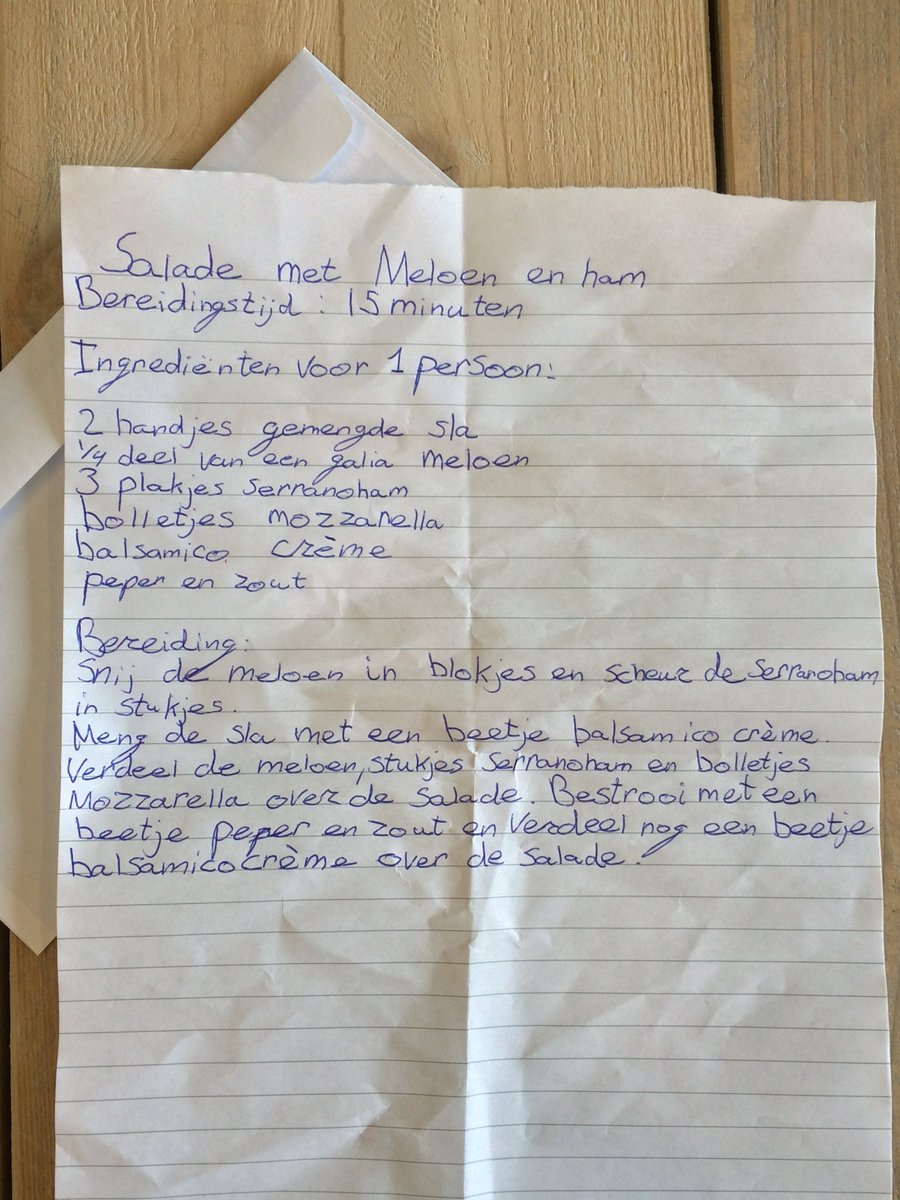 Salade met Meloen en ham
Bereidingstijd : 15 minuten
Ingrediënten voor 1 persoon:
2 handjes gemengde sla
1/4 deel van een galia meloen
3 plakjes serranoham
bolletjes mozzarella
balsamico crème
peper en zout
Bereiding:
Snij de meloen in blokjes en scheur de Serranoham
in stukjes.
Meng de sla met een beetje balsamico crème.
Verdeel de meloen, stukjes Serranoham en bolletjes
Mozzarella over de salade. Bestrooi met een
beetje peper en zout en verdeel nog een beetje
balsamicocrème over de salade.